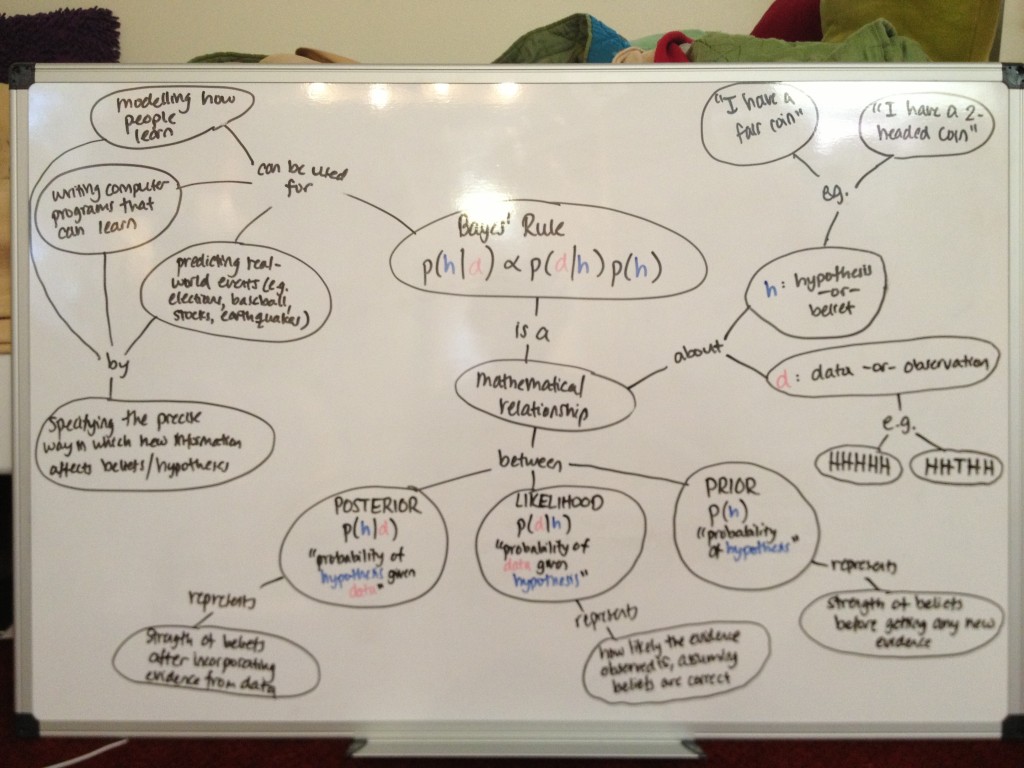 modelling how
people
learn
writing computer
programs that
can learn
predicting real-
world events (e.g.
elections, baseball,
stocks, earthquakes)
can be used
for
by
Specifying the precise
way in which new information
affects beliefs/hypothesis
Bayes' Rule
p(h|d) ∝ p(d|h) p(h)
is a
mathematical
relationship
about
"I have a
fair coin"
"I have a 2-
headed coin"
eg.
h: hypothesis
-or-
belief
d: data -or- observation
e.g.
HHHHH
HHTHH
between
POSTERIOR
p(h|d)
"probability of
hypothesis given
data"
represents
Strength of beliefs
after incorporating
evidence from data
LIKELIHOOD
p(d|h)
"probability of
data given
hypothesis"
represents
how likely the evidence
observed is, assuming
beliefs are correct
PRIOR
p(h)
"probability
of hypothesis"
represents
strength of beliefs
before getting any new
evidence